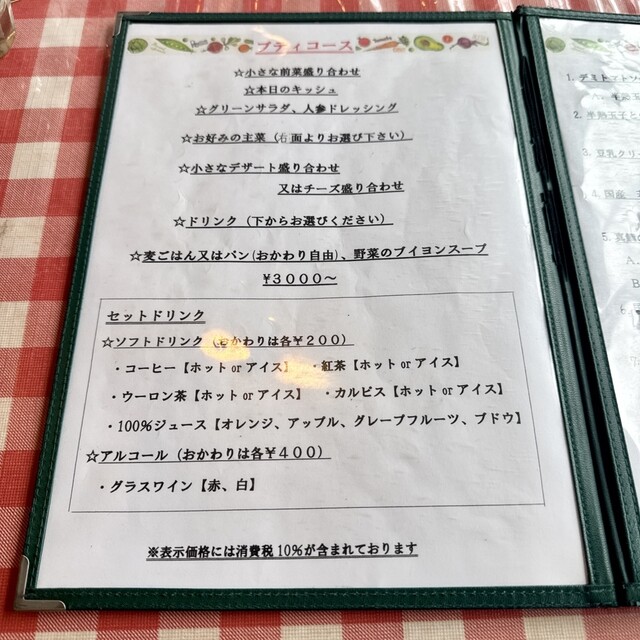 プティコース
☆小さな前菜盛り合わせ
☆本日のキッシュ
☆グリーンサラダ、人参ドレッシング
☆お好みの主菜（右面よりお選び下さい）
☆小さなデザート盛り合わせ
又はチーズ盛り合わせ
☆ドリンク（下からお選びください）
☆麦ごはん又はパン(おかわり自由)、野菜のブイヨンスープ
¥３０００～
セットドリンク
☆ソフトドリンク（おかわりは各¥２００）
・コーヒー【ホット or アイス】　・紅茶【ホット or アイス】
・ウーロン茶【ホット or アイス】　・カルピス【ホット or アイス】
・100％ジュース【オレンジ、アップル、グレープフルーツ、ブドウ】
☆アルコール（おかわりは各¥４００）
・グラスワイン【赤、白】
※表示価格には消費税 10％が含まれております
1.
2. 半熟玉子と
3. 豆乳クリー
4. 国産
5. 真鯛の
A.
B
6.